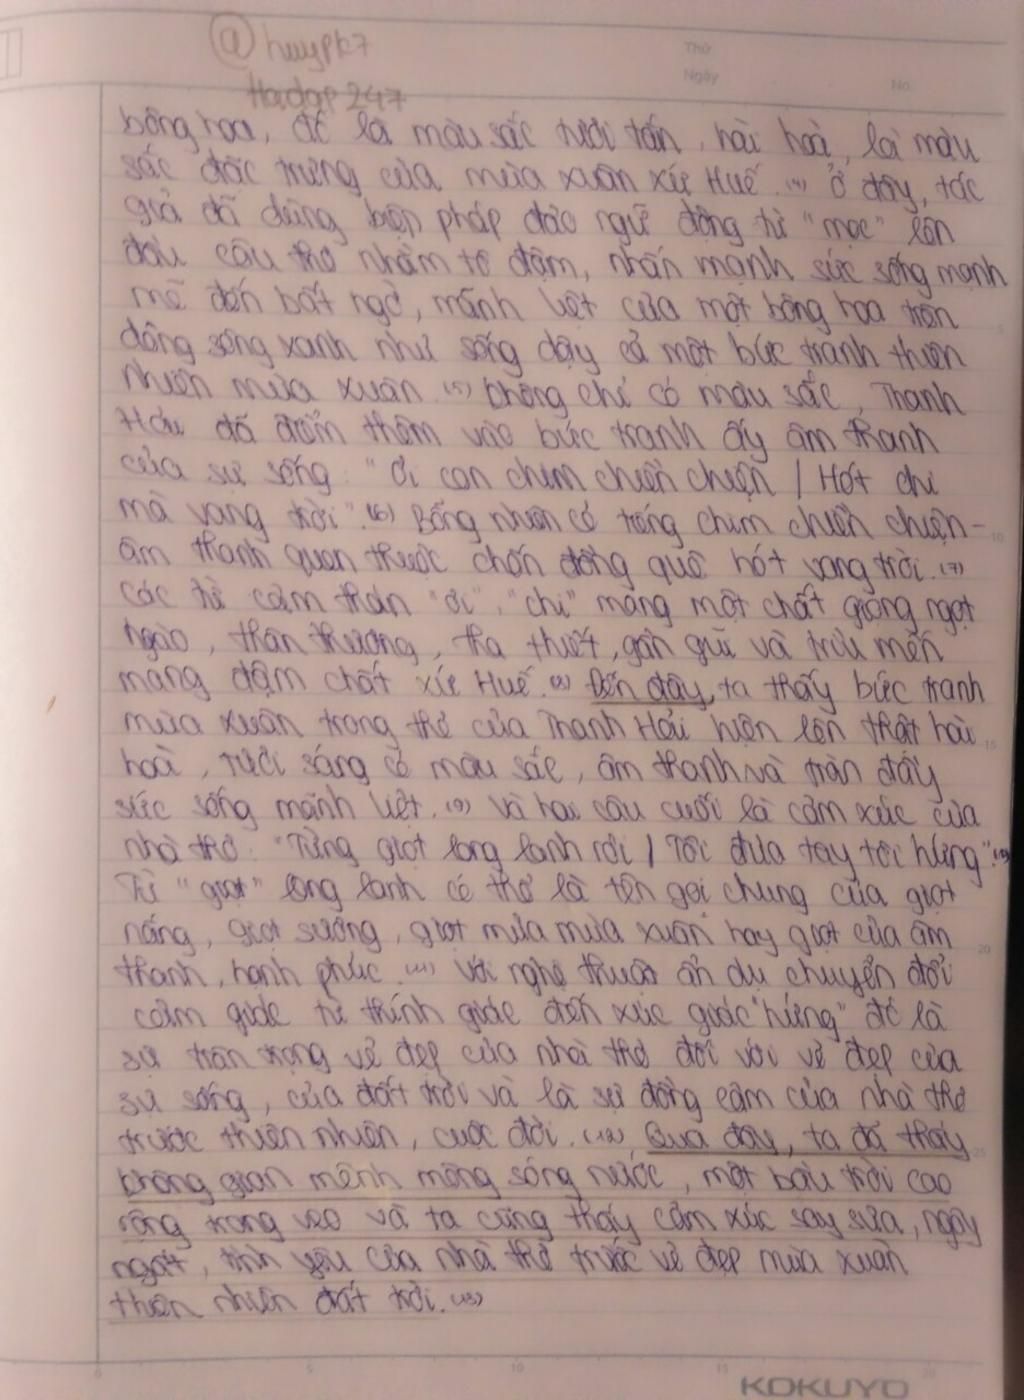 @huypk7
Hoidap247
Thứ
Ngày
No.
bông hoa, đó là màu sắc tươi tắn, hài hoà, là màu
sắc đặc trưng của mùa xuân xứ Huế. (4) Ở đây, tác
giả đã dùng biện pháp đảo ngữ động từ "mọc" lên
đầu câu thơ nhằm tô đậm, nhấn mạnh sức sống mạnh
mẽ đến bất ngờ, mãnh liệt của một bông hoa trên
dòng sông xanh như sống dậy cả một bức tranh thiên
nhiên mùa xuân. (5) Không chỉ có màu sắc, Thanh
Hải đã điểm thêm vào bức tranh ấy âm thanh
của sự sống: "Ơi con chim chiền chiện / Hót chi
mà vang trời". (6) Bỗng nhiên có tiếng chim chiền chiện -
âm thanh quen thuộc chốn đồng quê hót vang trời. (7)
Các từ cảm thán "ơi", "chi" mang một chất giọng ngọt
ngào, thân thương, tha thiết, gần gũi và trìu mến
mang đậm chất xứ Huế. (8) Đến đây, ta thấy bức tranh
mùa xuân trong thơ của Thanh Hải hiện lên thật hài
hoà, tươi sáng có màu sắc, âm thanh và tràn đầy
sức sống mãnh liệt. (9) Và hai câu cuối là cảm xúc của
nhà thơ: "Từng giọt long lanh rơi / Tôi đưa tay tôi hứng". (10)
Từ "giọt" long lanh có thể là tên gọi chung của giọt
nắng, giọt sương, giọt mưa mùa xuân hay giọt của âm
thanh, hạnh phúc. (11) Với nghệ thuật ẩn dụ chuyển đổi
cảm giác từ thính giác đến xúc giác "hứng" đó là
sự trân trọng vẻ đẹp của nhà thơ đối với vẻ đẹp của
sự sống, của đất trời và là sự đồng cảm của nhà thơ
trước thiên nhiên, cuộc đời. (12) Qua đây, ta đã thấy
không gian mênh mông sóng nước, một bầu trời cao
rộng trong veo và ta cũng thấy cảm xúc say sưa, ngây
ngất, tình yêu của nhà thơ trước vẻ đẹp mùa xuân
thiên nhiên đất trời. (13)
5
10
15
20
25
0 5 10 15 20
KOKUYO